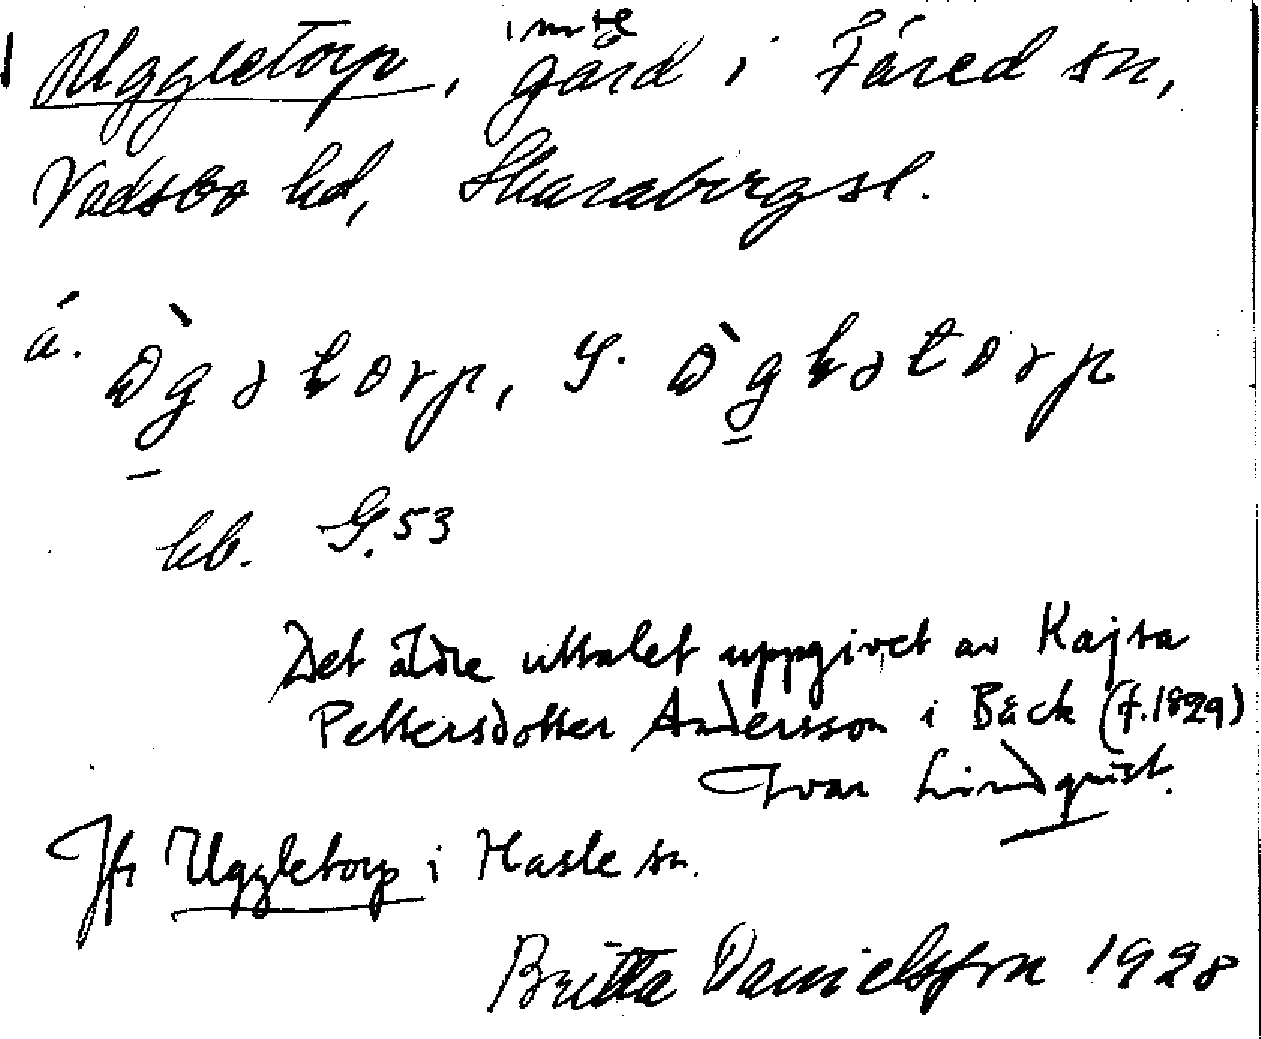 1 mtl
Uggletorp, gård i Fåred sn,
Vadsbo hd, Skarabergsl.
ä. ògətorp, y. òghətorp
hb. G. 53
Det äldre uttalet uppgivet av Kajsa
Pettersdotter Andersson i Bäck (f. 1829)
Ivar Lindquist.
Jfr Uggletorp i Hasle sn.
Britta Danielsson 1928